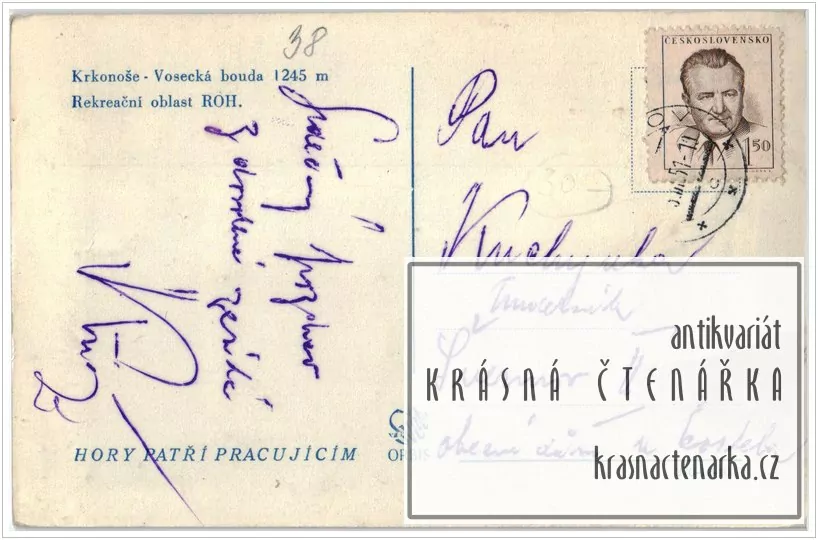 38
Krkonoše - Vosecká bouda 1245 m
Rekreační oblast ROH.
Srdečný pozdrav
z dovolené zasílá
HORY PATŘÍ PRACUJÍCÍM
ORBIS
ČESKOSLOVENSKO
1.50
Pan
Kuchynka
obecní dům u kostela
antikvariát
KRÁSNÁ ČTENÁŘKA
krasnactenarka.cz